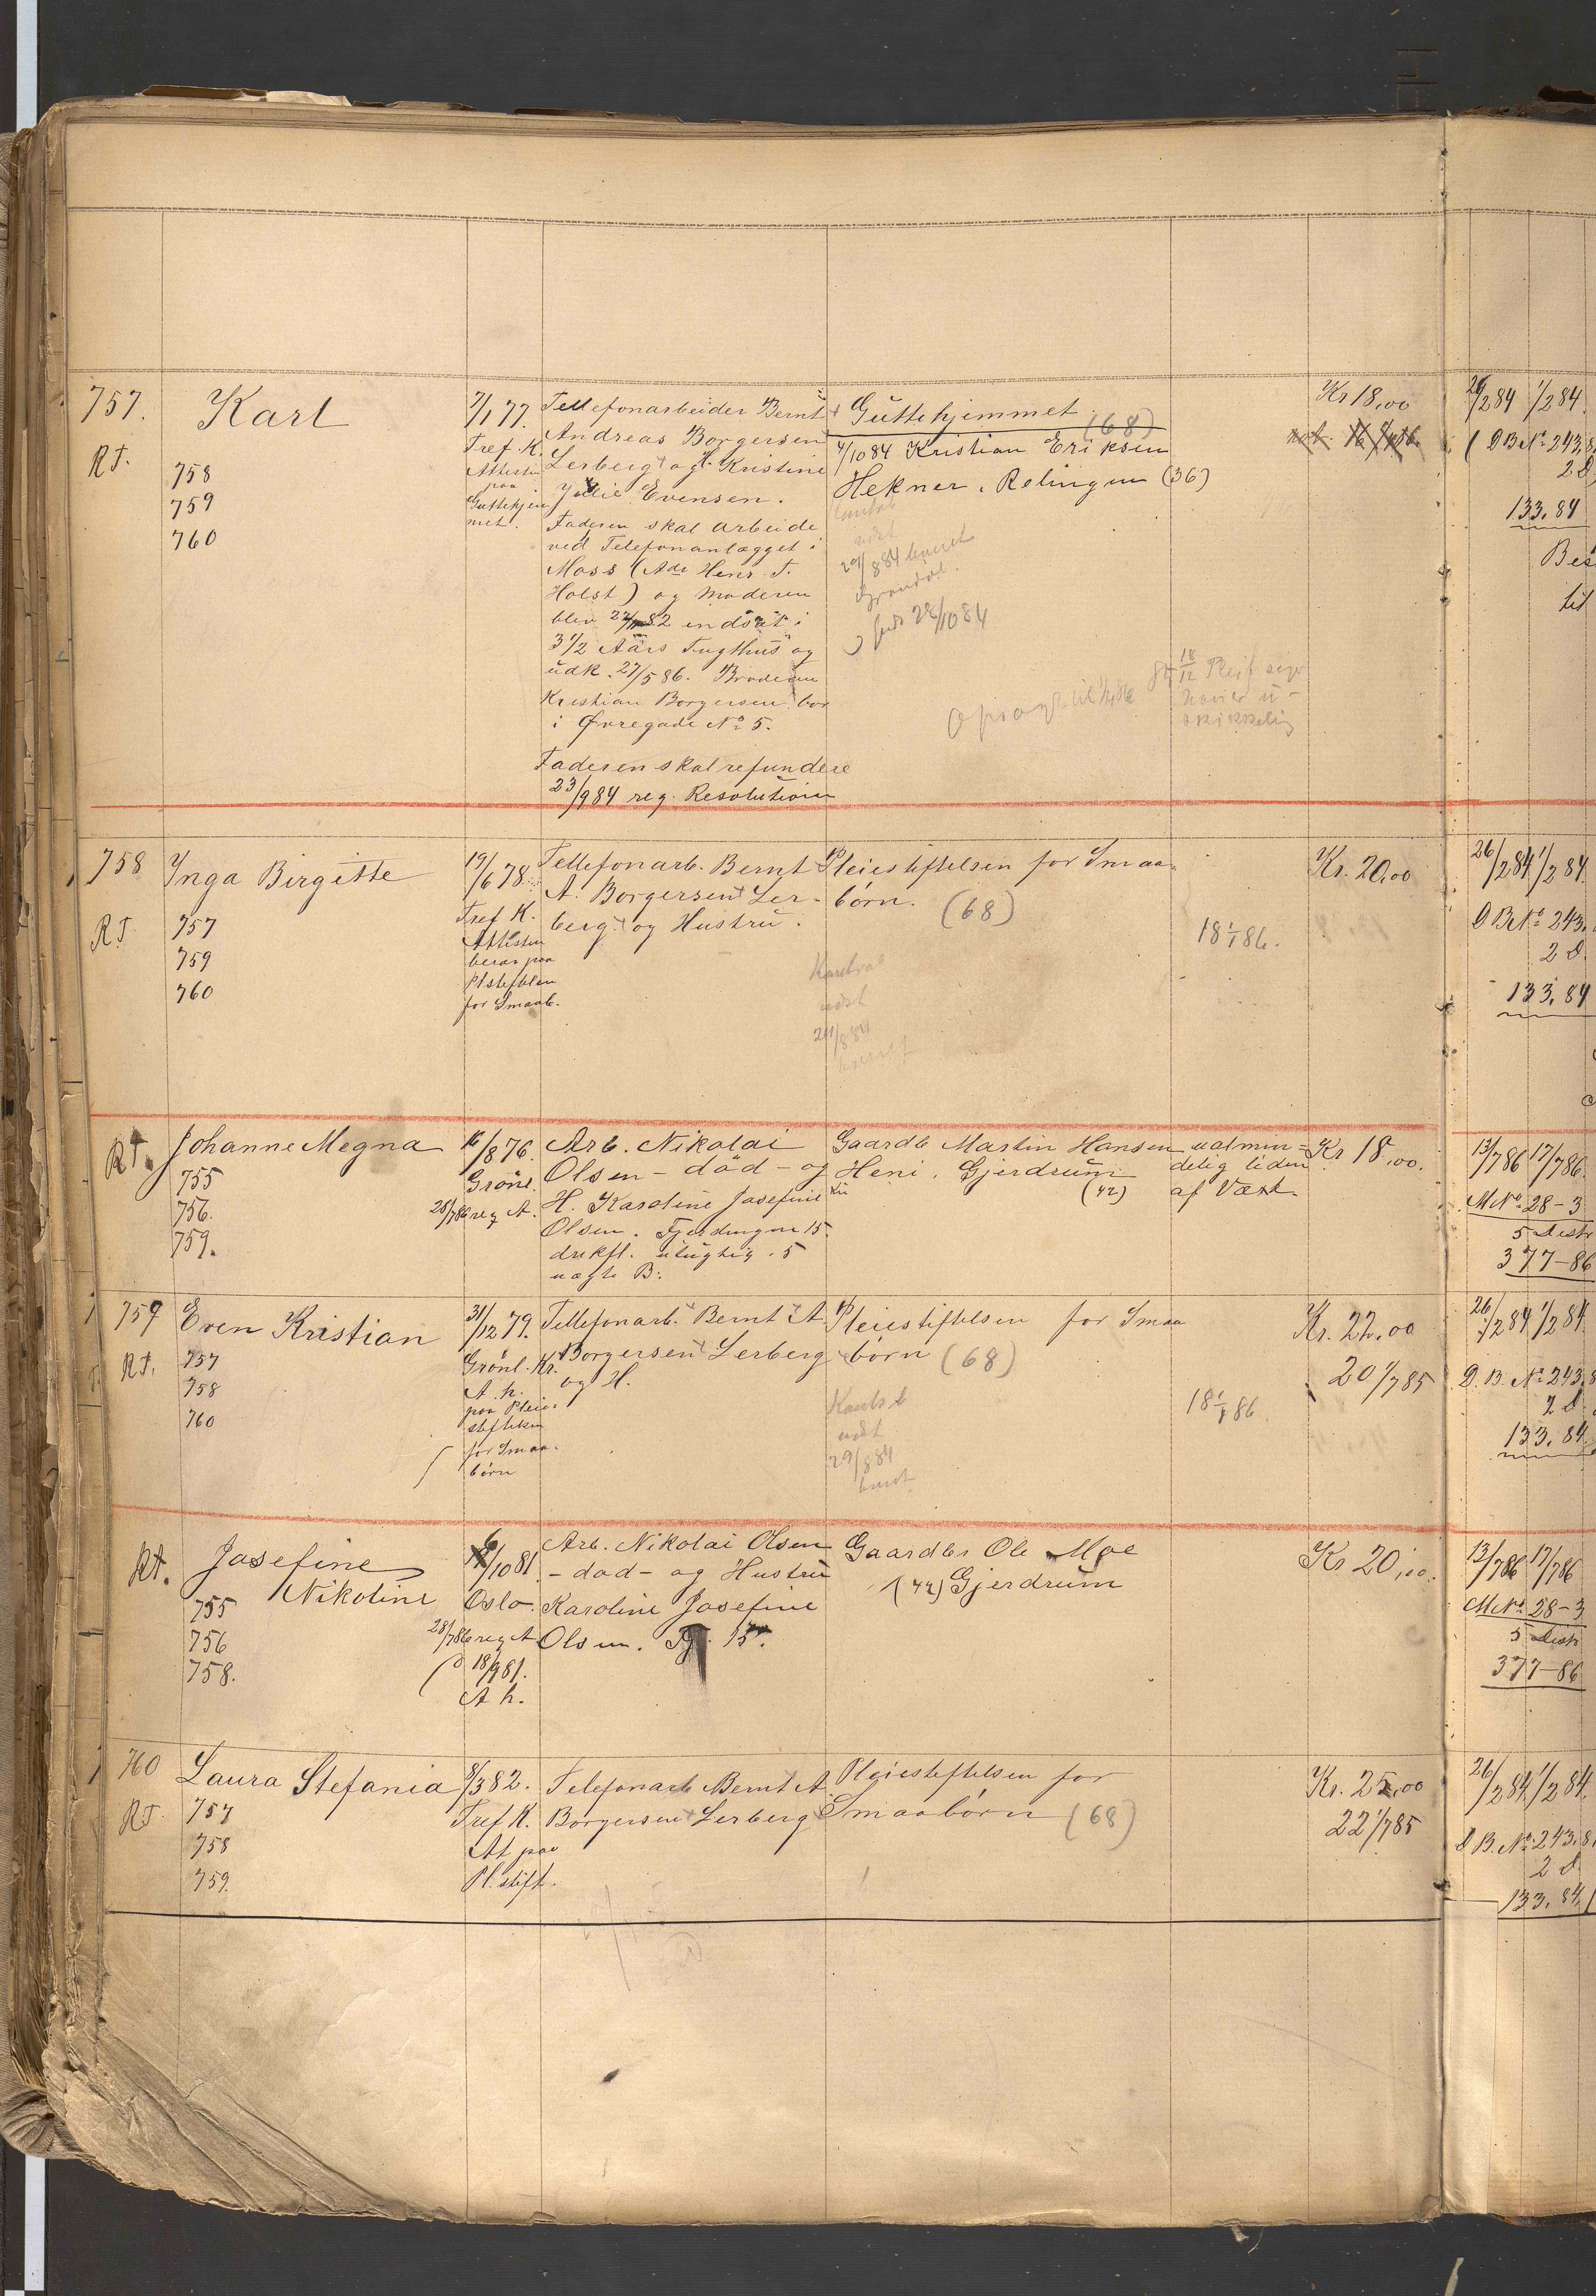 757.
Karl
7/1 77.
Tref. K.
Attesten
paa
Guttehjem
met.
RT.
758
759
760
Tellefonarbeider Bernt
Andreas Borgersen
Lerberg og H. Kristine
Julie Evensen.
Faderen skal arbeide
ved Telefonanlægget i
Moss (Adr Henr. T.
Holst) og Moderen
blev 22/11 82 indsat i
3 1/2 Aars Tugthus og
udk. 27/5 86. Broderen
Kristian Borgersen bor
i Øvregade No 5.
Faderen skal refundere
23/9 84 reg. Resolution
Guttehjemmet (68)
4/10 84 Kristian Eriksen
Hekner, Relingen (36)
29/8 84
28/10 84
Kr 18,00
26/2 84 1/2 84.
(DB No 243,8
2 D
133.84
758
Inga Birgitte
RT
757
759
760
19/6 78.
Tref K.
Attesten
beror paa
Plstiftelsen
for Smaab.
Tellefonarb. Bernt
A. Borgersen Ler-
berg og Hustru.
Pleiestiftelsen for Smaa-
børn. (68)
18 1/1 86.
29/8 84
Kr. 20,00
26/2 84 1/2 84.
D B No 243,
2 D.
133.84
Rt.
Johanne Magna
755
756.
759.
16/8 76.
Grønl.
28/7 86 reg A.
Arb. Nikolai
Olsen - død - og
H. Karoline Josefine
Olsen. Fjerdingen 15.
drikf. utugtig. 5
uægte B:
Gaardb Martin Hansen
Heni, Gjerdrum
(42)
ualmin-
delig liden
af Væxt.
Kr 18,00.
13/7 86 17/7 86
M No 28-3
5 Distr
377-86
759
Even Kristian
RT.
757
758
760
31/12 79.
Grønl. Kr.
A. h.
paa Pleie-
stiftelsen
for Smaa-
børn
Tellefonarb. Bernt A
Borgersen Lerberg
og H.
Pleiestiftelsen for Smaa
børn (68)
29/8 84
18 1/1 86
Kr. 22,00
20 1/7 85
26/2 84 1/2 84
D. B. No 243,8
2 D.
133.84
Rt.
Josefine
Nikoline
755
756
758.
6/10 81.
Oslo.
28/7 86 reg A
18/9 81.
A h.
Arb. Nikolai Olsen
- død - og Hustru
Karoline Josefine
Olsen. Fj. 15.
Gaardbr Ole Moe
(42) Gjerdrum
Kr 20,00.
13/7 86 17/7 86
M No 28-3
5 Distr
377-86
760
Laura Stefania
RT
757
758
759.
8/3 82.
Tref K.
At paa
Pl. stift.
Telefonarb Bernt A
Borgersen Lerberg
Pleiestiftelsen for
Smaabørn (68)
Kr. 25,00
22 1/7 85
26/2 84. 1/2 84.
D B. No 243.8
2 D
133.84